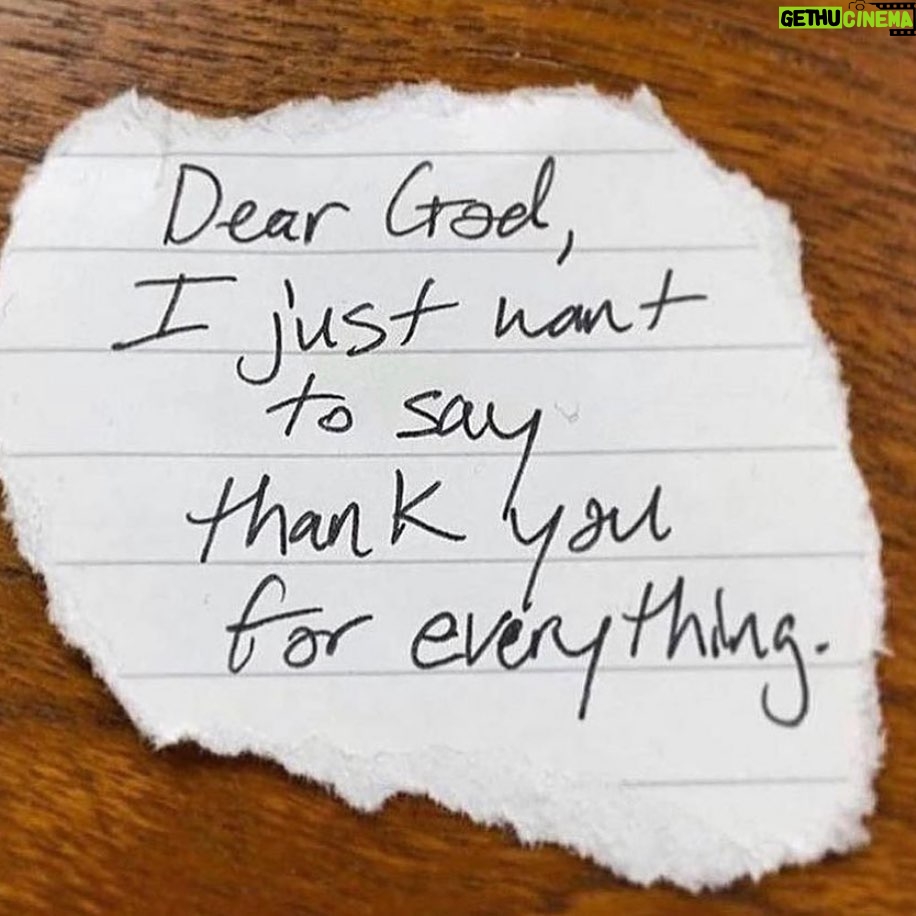 GETHUCINEMA
Dear God,
I just want
to say
thank you
for everything.